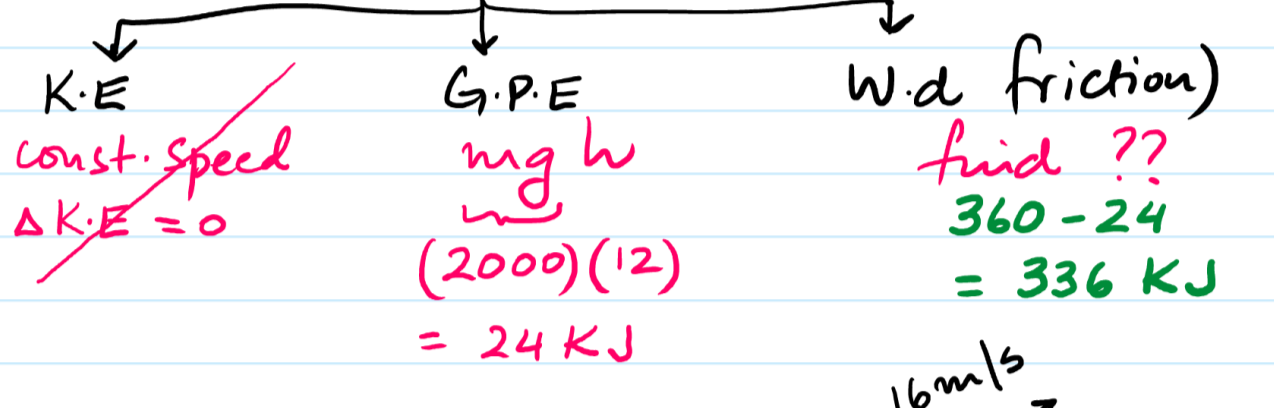 K.E
const. speed
Δ K.E = 0
G.P.E
mgh
(2000)(12)
= 24 KJ
W.d friction)
find ??
360 - 24
= 336 KJ
16 m/s